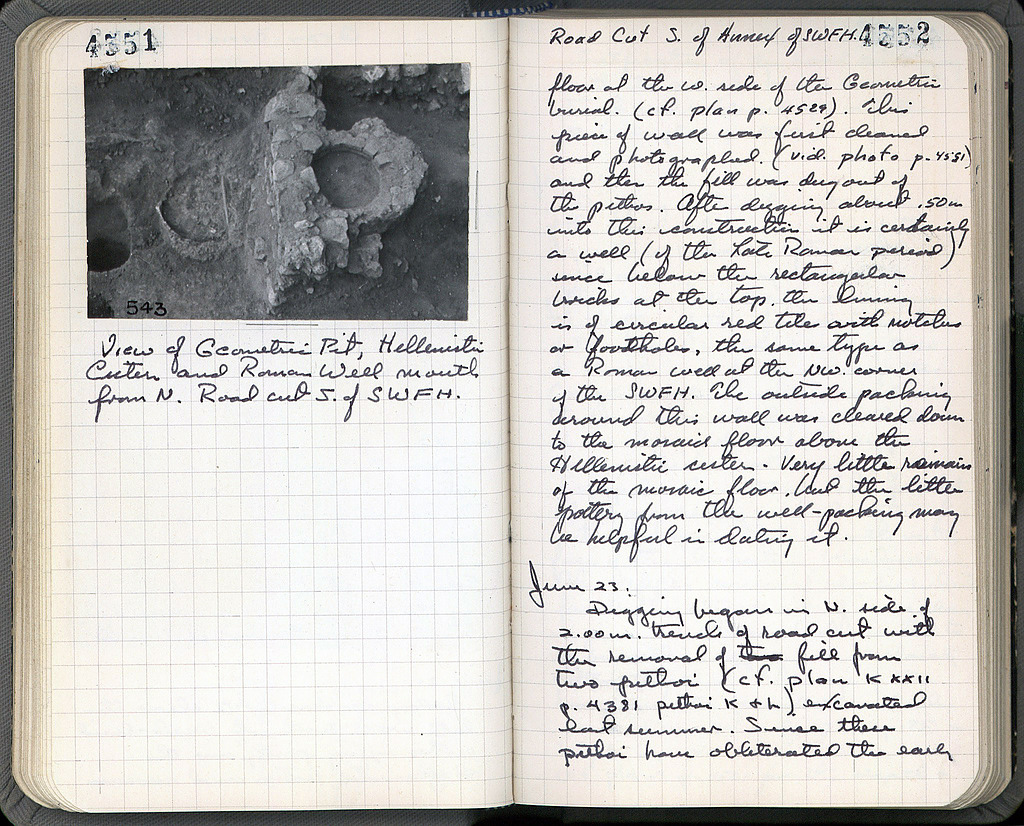 4551
543
View of Geometric Pit, Hellenistic
Cistern and Roman Well mouth
from N. Road cut S. of SWFH.
Road Cut S. of Annex of SWFH. 4552
floor at the W. side of the Geometric
burial. (cf. plan p. 4529). This
piece of wall was first cleaned
and photographed. (vid. photo p. 4551)
and then the fill was dug out of
the pithos. After digging about .50m
into this construction it is certainly
a well (of the Late Roman period)
since below the rectangular
bricks at the top, the lining
is of circular red tiles with notches
or footholes, the same type as
a Roman well at the NW. corner
of the SWFH. The outside packing
around this wall was cleared down
to the mosaic floor above the
Hellenistic cistern. Very little remains
of the mosaic floor, but the little
pottery from the well-packing may
be helpful in dating it.
June 23.
Digging began in N. side of
2.00m. trench of road cut with
the removal of fill from
two pithoi (cf. plan K XXII
p. 4381 pithoi K + L) excavated
last summer. Since these
pithoi have obliterated the early